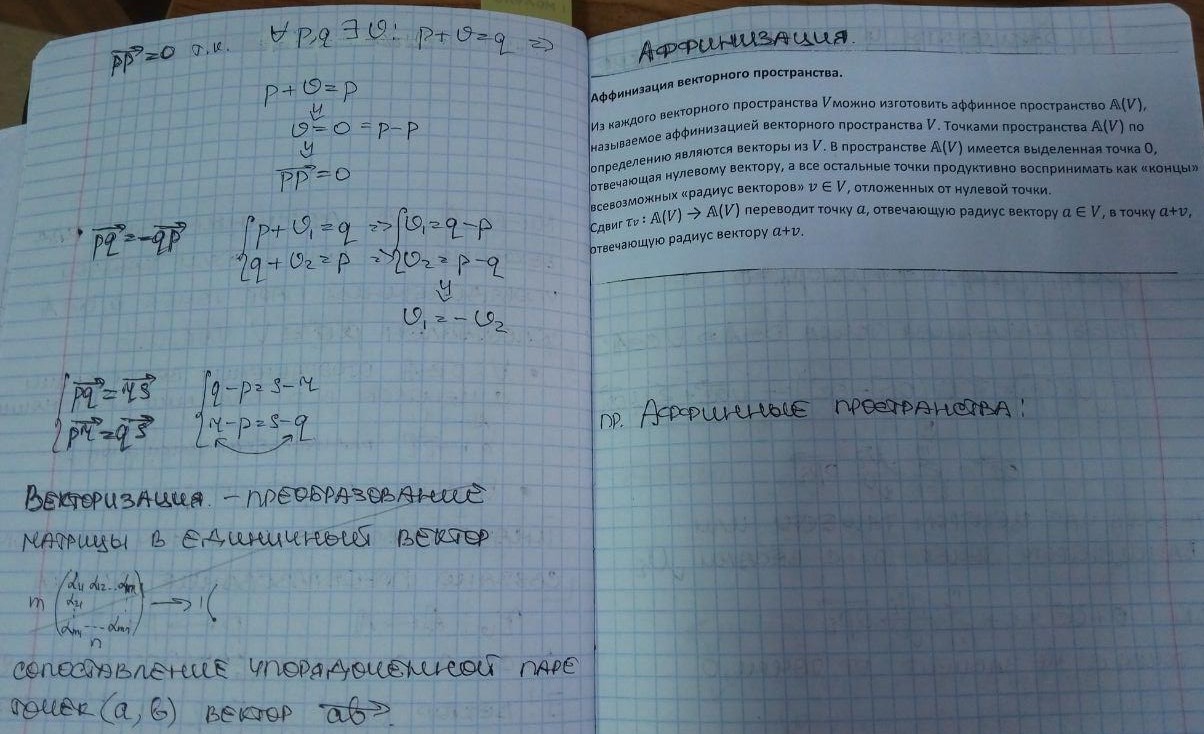 \overrightarrow{pp}=0 т.к. ∀p,q ∃ υ: p+υ=q ⇒
p+υ=p
⇓
υ=0=p-p
⇓
\overrightarrow{pp}=0
\overrightarrow{pq}=-\overrightarrow{qp} { p+υ₁=q => { υ₁=q-p
q+υ₂=p => υ₂=p-q
⇓
υ₁=-υ₂
{ \overrightarrow{pq}=\overrightarrow{rs} { q-p=s-r
\overrightarrow{pr}=\overrightarrow{qs} r-p=s-q
ВЕКТОРИЗАЦИЯ. - ПРЕОБРАЗОВАНИЕ
МАТРИЦЫ В ЕДИНИЧНЫЙ ВЕКТОР
m ( α₁₁ α₁₂ ... α₁ₙ ) → 1(
α₂₁
αₘ₁ ... αₘₙ
n
СОПОСТАВЛЕНИЕ УПОРЯДОЧЕННОЙ ПАРЕ
ТОЧЕК (a, b) ВЕКТОР \overrightarrow{ab}.
АФФИНИЗАЦИЯ.
Аффинизация векторного пространства.
Из каждого векторного пространства V можно изготовить аффинное пространство 𝔸(V),
называемое аффинизацией векторного пространства V. Точками пространства 𝔸(V) по
определению являются векторы из V. В пространстве 𝔸(V) имеется выделенная точка 0,
отвечающая нулевому вектору, а все остальные точки продуктивно воспринимать как «концы»
всевозможных «радиус векторов» v ∈ V, отложенных от нулевой точки.
Сдвиг τᵥ : 𝔸(V) → 𝔸(V) переводит точку a, отвечающую радиус вектору a ∈ V, в точку a+v,
отвечающую радиус вектору a+v.
ПР. АФФИННЫЕ ПРОСТРАНСТВА: